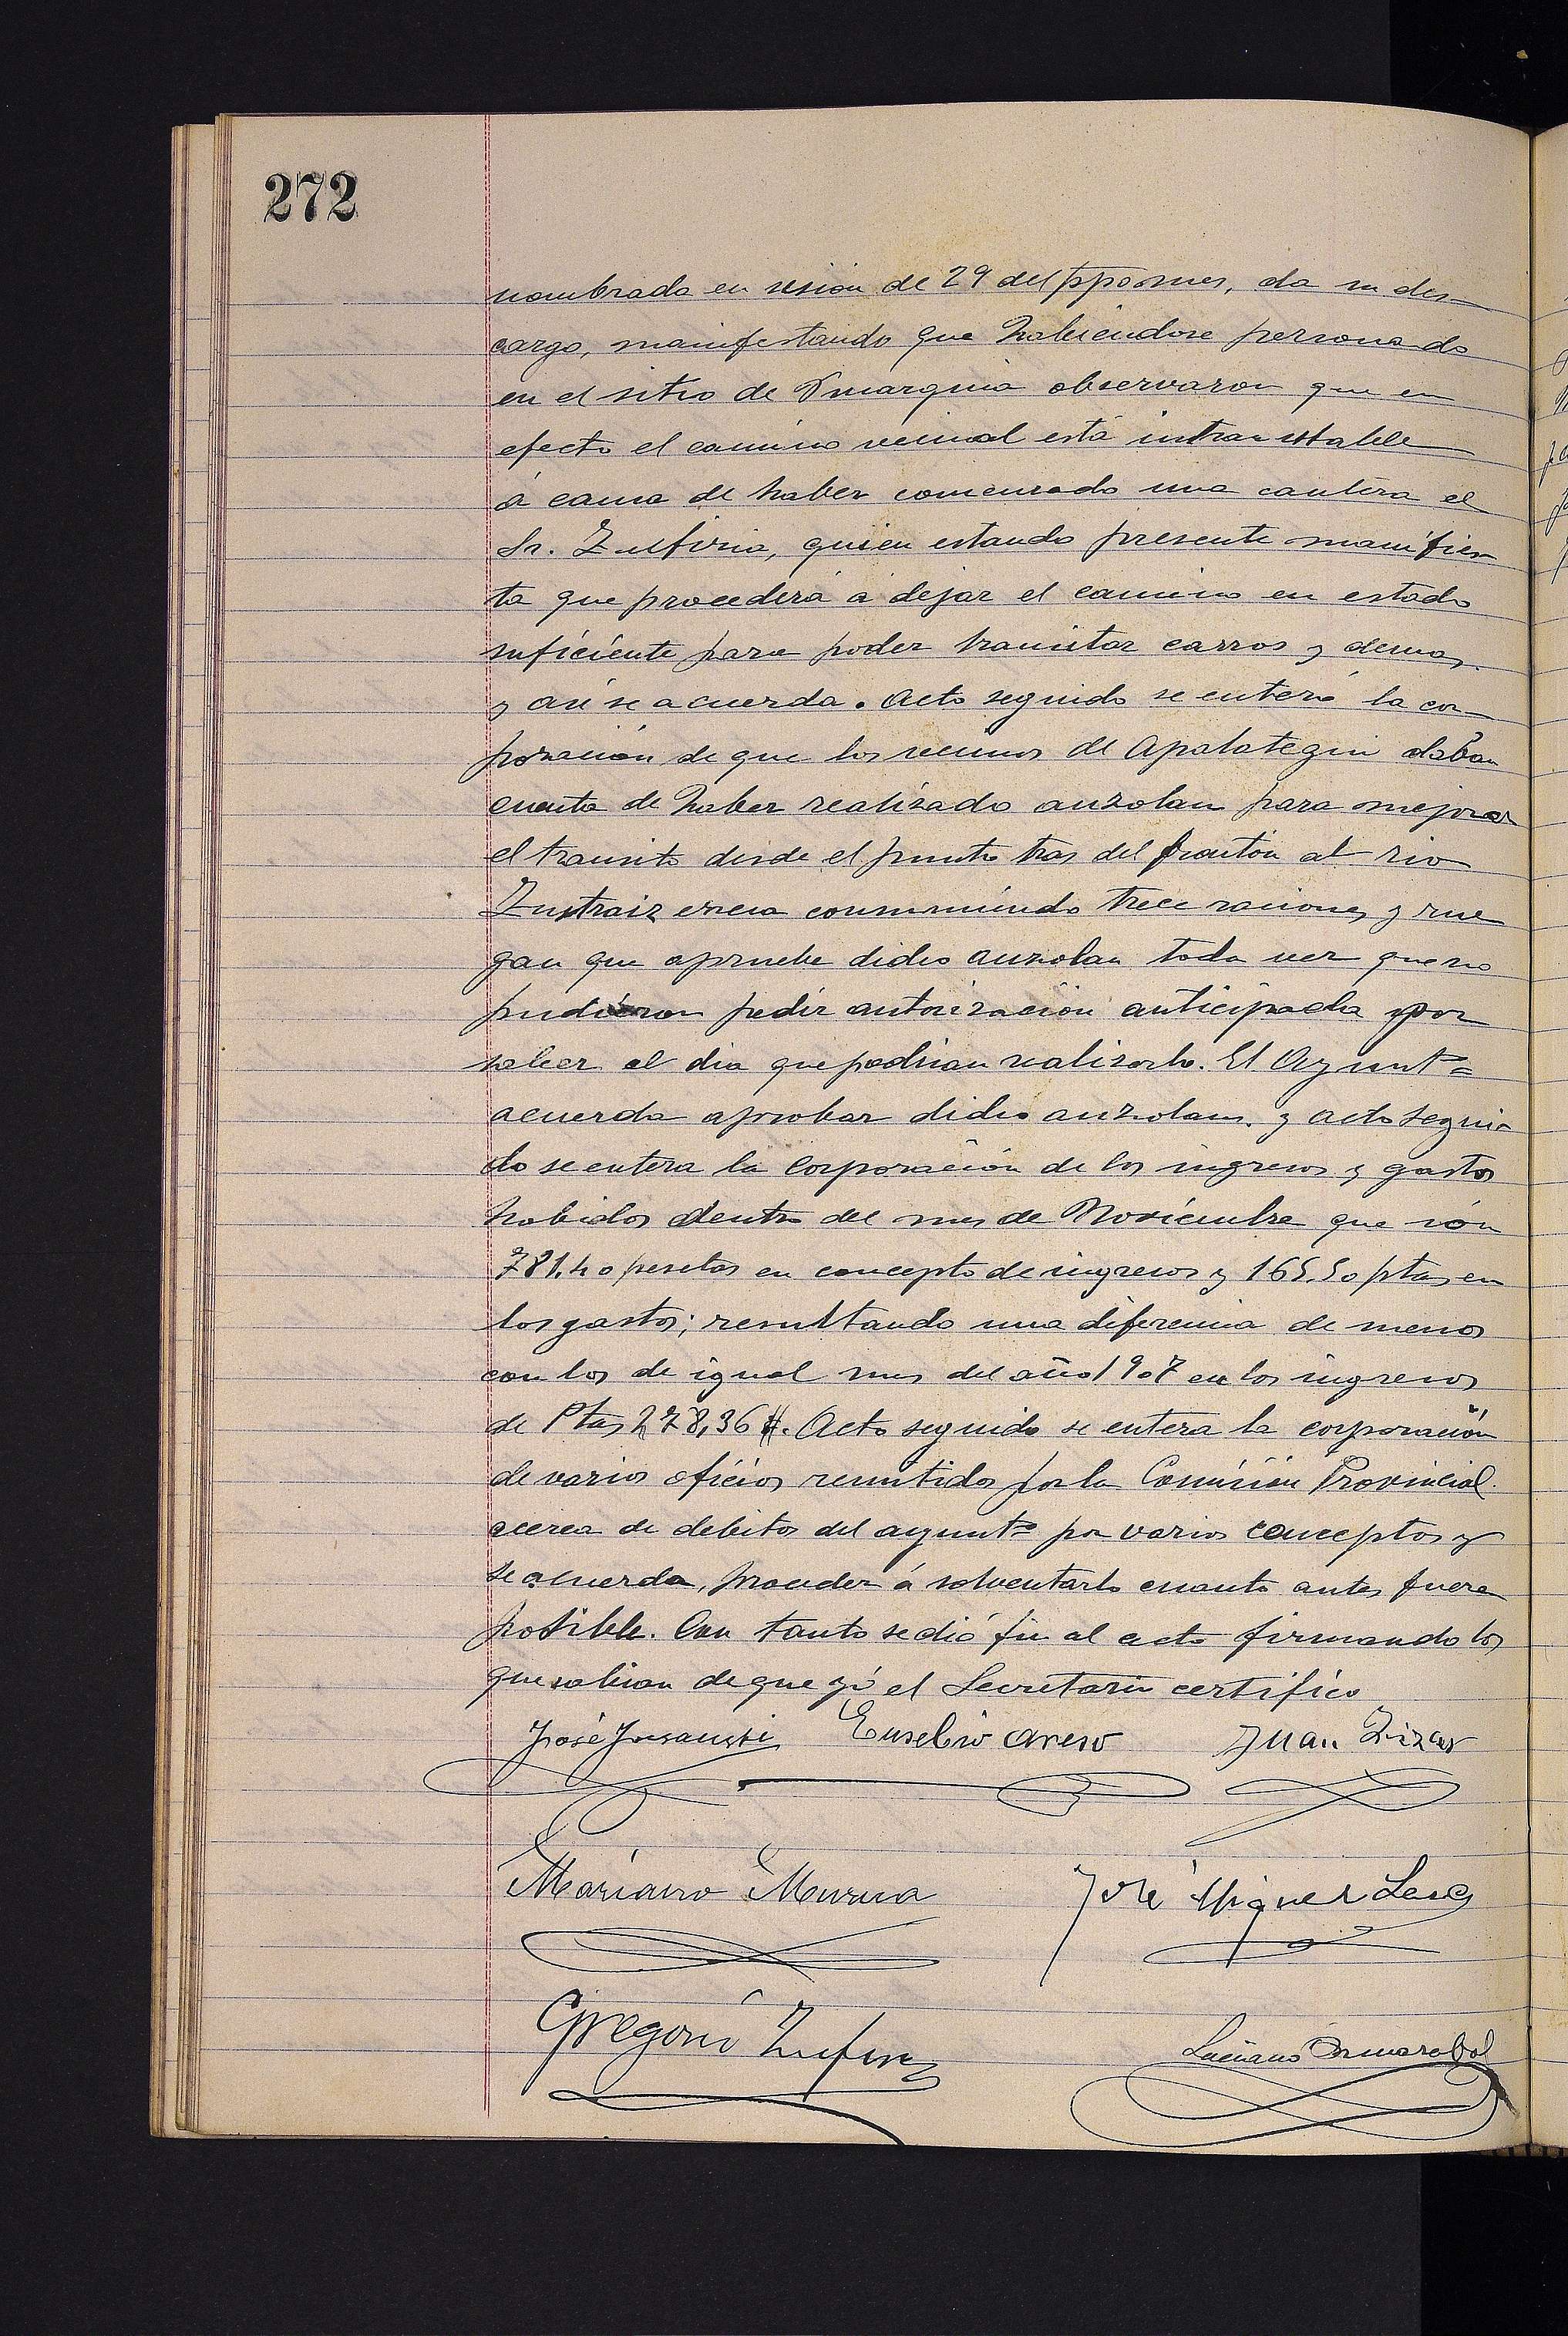 272
nombrada en sesión de 29 del ppdo mes, da su des-
cargo, manifestando que habiendose personado
en el sitio de observaron que en
efecto el camino vecinal está intransitable
á causa de haber comenzado una cantera el
Sr. Zufiria, quien estando presente manifies-
ta que procederá á dejar el camino en estado
suficiente para poder transitar carros y demas
y asi se acuerda. Acto seguido se enteró la cor-
poración de que los vecinos de Apalategui daban
cuenta de haber realizado auzolan para mejorar
el transito desde el punto tras del frontón al rio
consumiendo trece raciones y rue-
gan que apruebe dicho auzolan toda vez que no
pudieron pedir autorización anticipada por
saber al dia que podrian realizarlo. El Ayuntº
acuerda aprobar dicho auzolan. y acto segui-
do se entera la Corporación de los ingresos y gastos
habidos dentro del mes de Noviembre que són
781.40 pesetas en concepto de ingresos y 165.50 ptas en
los gastos; resultando una diferencia de menos
con los de igual mes del año 1907 en los ingresos
de Ptas 278,36 #. Acto seguido se entera la corporación
de varios oficios remitidos por la Comisión Provincial
acerca de debitos del ayuntº por varios conceptos y
se acuerda, proceder á solventarlo cuanto antes fuera
posible. Con tanto se dió fin al acto firmando los
que sabian de que yó el Secretario certifico
José Eusebio Areso Juan
Mariano Murua José Miguel
Gregorio Zufiria Luciano Ormazabal